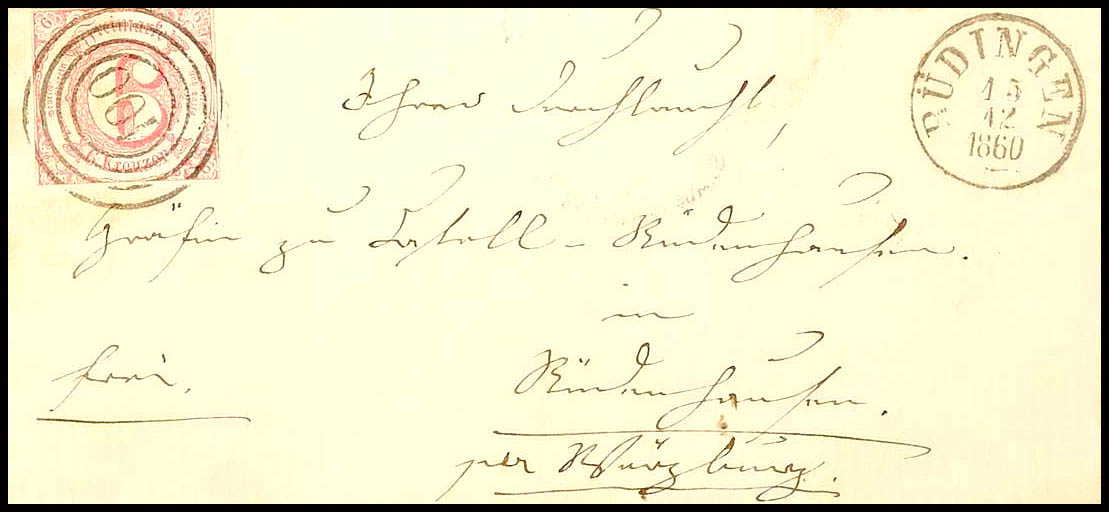 Freimarke
6
6. Kreuzer
100
BÜDINGEN
15
12
1860
Ihrer Durchlaucht,
Gräfin zu Castell - Rüdenhausen.
in
Rüdenhausen.
frei.
per Würzburg.